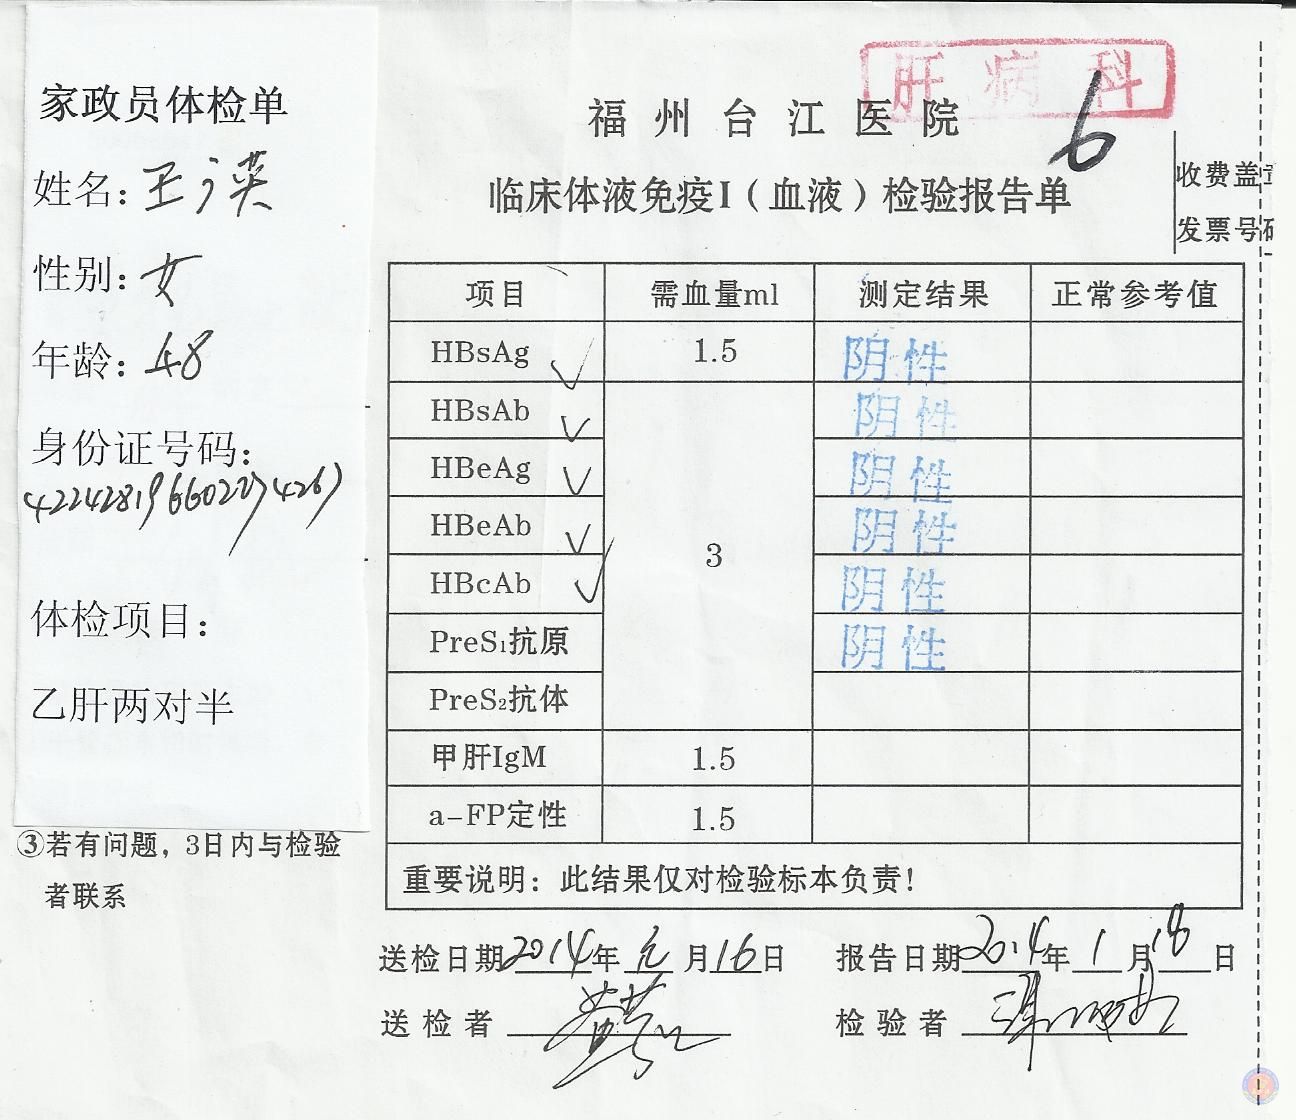 家政员体检单
姓名：王广英
性别：女
年龄：48
身份证号码：
体检项目：
乙肝两对半
③若有问题，3日内与检验
者联系
肝病科
福州台江医院
6
临床体液免疫I（血液）检验报告单
收费盖章
发票号码
项目 需血量ml 测定结果 正常参考值
HBsAg 1.5 阴性
HBsAb 阴性
HBeAg 阴性
HBeAb 阴性
3
HBcAb 阴性
PreS₁抗原 阴性
PreS₂抗体
甲肝IgM 1.5
a-FP定性 1.5
重要说明：此结果仅对检验标本负责！
送检日期2014年元月16日 报告日期2014年1月18日
送检者 检验者